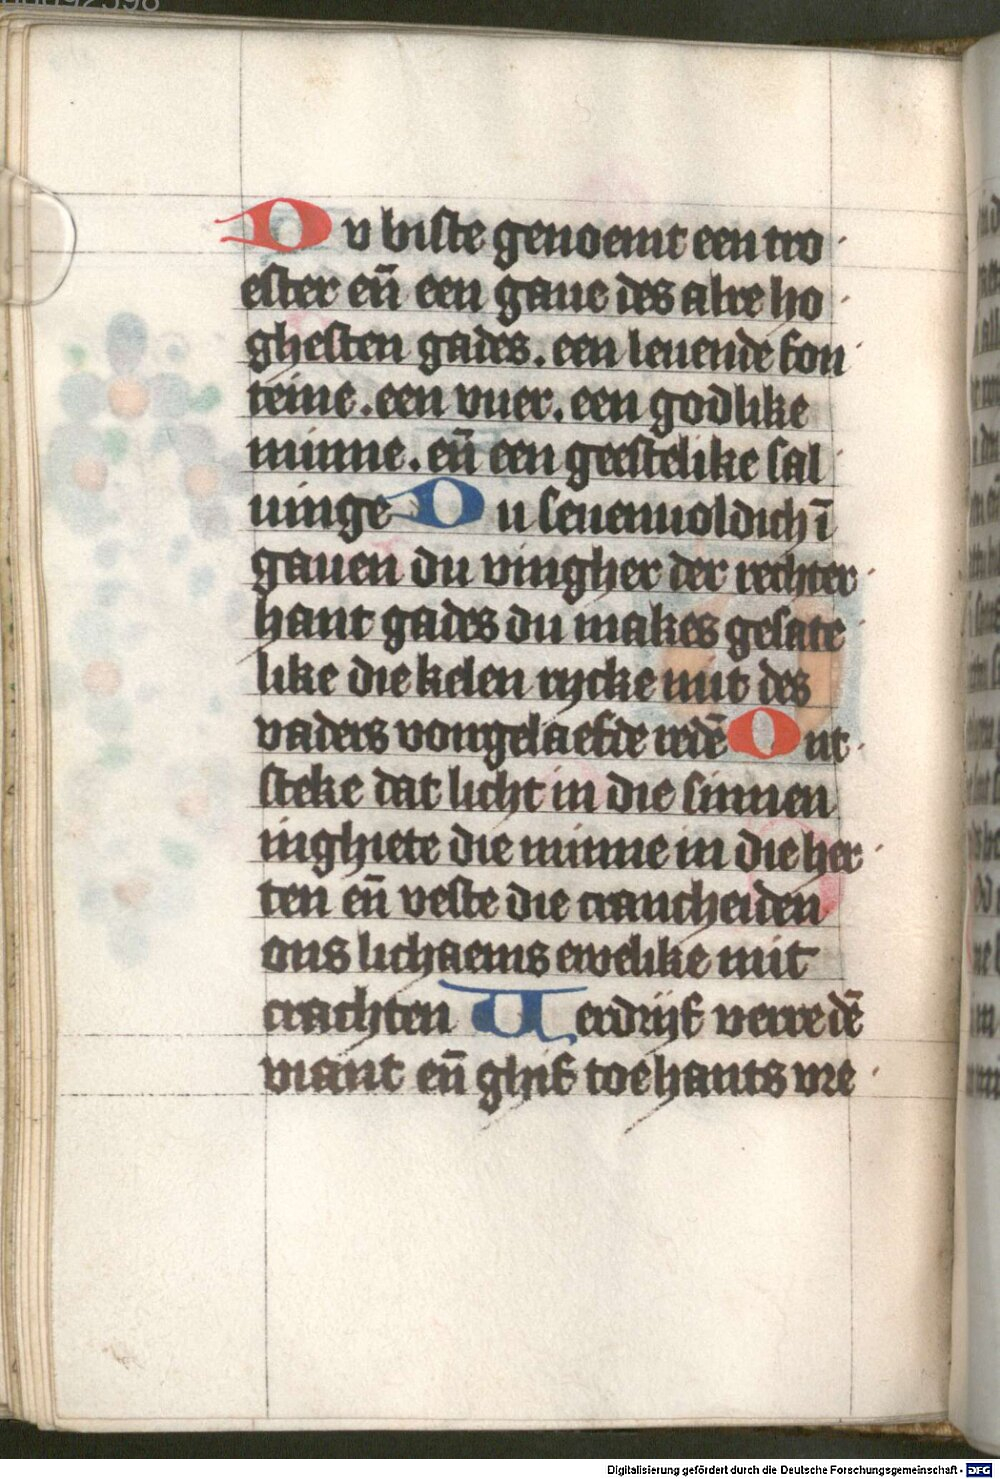 Du biste genoemt een tro
ester eñ een gaue des alre ho
ghesten gades. een leuende fon
teine. een vuer. een godlike
minne. eñ een geestelike sal
uinge Du seuenuoldich ī
gauen du vingher der rechter
hant gades du makes gesate
like die kelen rycke mit des
vaders vorgelaefde redē Ont
steke dat licht in die sinnen
inghiete die minne in die her
ten eñ veste die crancheiden
ons lichaems ewelike mit
crachten Uerdrijf verre dē
viant eñ ghif toehants vre
Digitalisierung gefördert durch die Deutsche Forschungsgemeinschaft - DFG